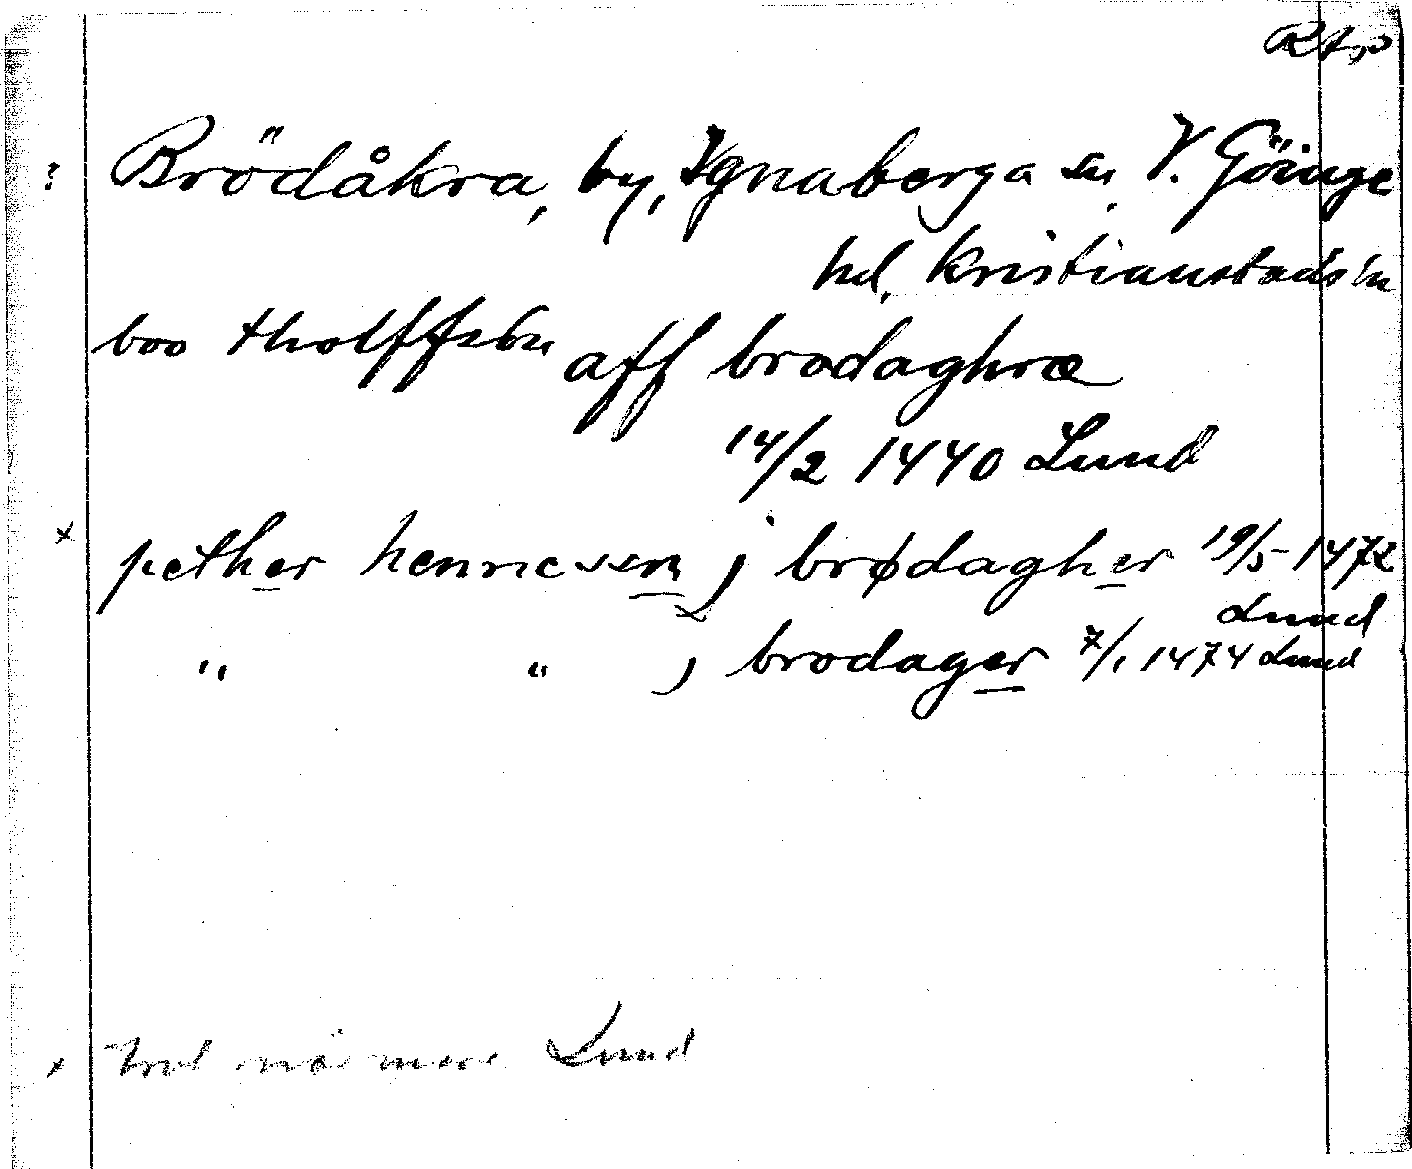 RAp
? Brödåkra, by, Ignaberga sn, V. Göinge
hd, Kristianstads ln
boo tholffsön aff brodaghræ
14/2 1440 Lund
x pether hennessen j brødagher 19/5 1472
Lund
" " j brodager 7/1 1474 Lund
x trol närmare Lund